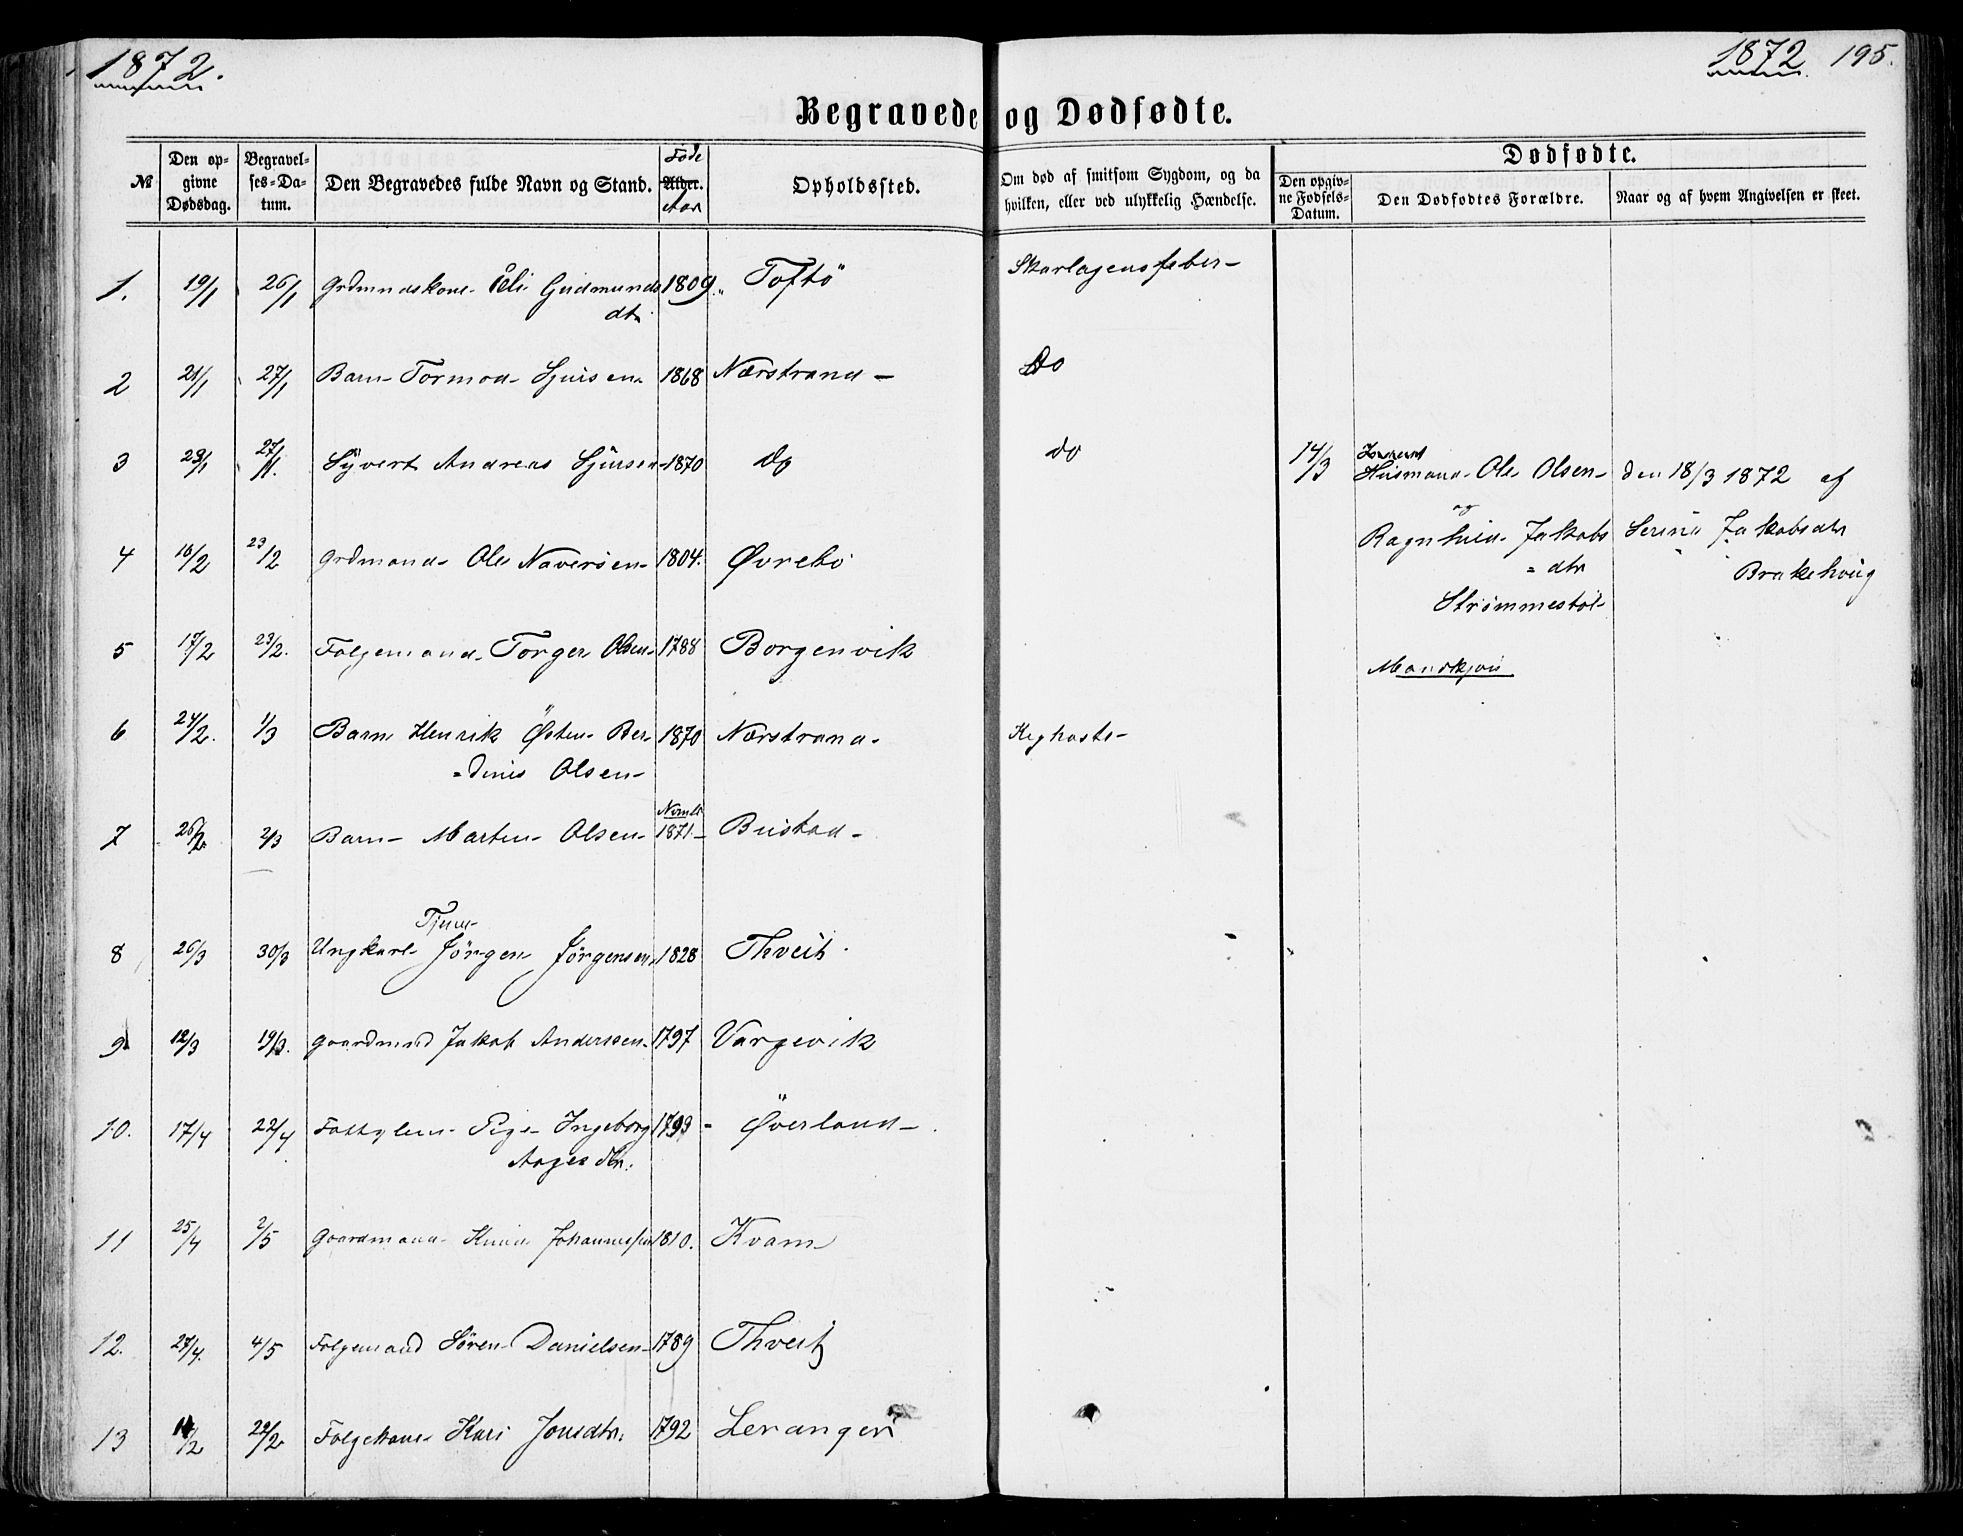 1872.
1872 195.
Begravede og Dødfødte.
№
Den opgivne Dødsdag.
Begravelses-Datum.
Den Begravedes fulde Navn og Stand.
Føde
Alder.
Aar
Opholdssted.
Om død af smitsom Sygdom, og da hvilken, eller ved ulykkelig Hændelse.
Dødfødte.
Den opgivne Fødsels-Datum.
Den Dødfødtes Forældre.
Naar og af hvem Angivelsen er skeet.
1. 19/1 26/1 Grdmndskone Eli Gudmunds 1809 Toftø Skarlagensfeber
dtr
2 21/1 27/1 Barn Tormod Sjursen 1868 Nærstrand Do
3 23/1 27/1 Syvert Andreas Sjursen 1870 do do 14/3 Husmand Ole Olsen den 18/3 1872 af
og
4 16/2 23/2 Grdmand Ole Naversen 1804. Øvrebø Ragnhild Jakobs Serina Jakobsdtr
= dtr Brakehoug
Strømmestøl
5 17/2 23/2. Følgemand Torger Olsen 1788 Borgenvik
Mandkjøn
6 24/2. 1/3 Barn Henrik Østen Ber- 1870 Nærstrand Kighoste
=dinis Olsen
7 26/2 2/3 Barn Martin Olsen 1871 Bustad
Tjen
8 26/3 30/3 Ungkarl Jörgen Jörgensen 1828 Thveit
9 12/3 19/3. Gaardmnd Jakob Anderssen 1797 Vargevik
10. 17/4 22/4 Fattiglem Pige Ingeborg 1793 Øverland
Aagesdtr.
11 25/4 2/5 Gaardmand Knud Johannessen 1810. Kvam
12. 27/4. 4/5 Følgemand Sören Danielsen 1789 Thveit
13 11/2 22/2 Følgekone Kari Jonsdtr. 1792 Leranger